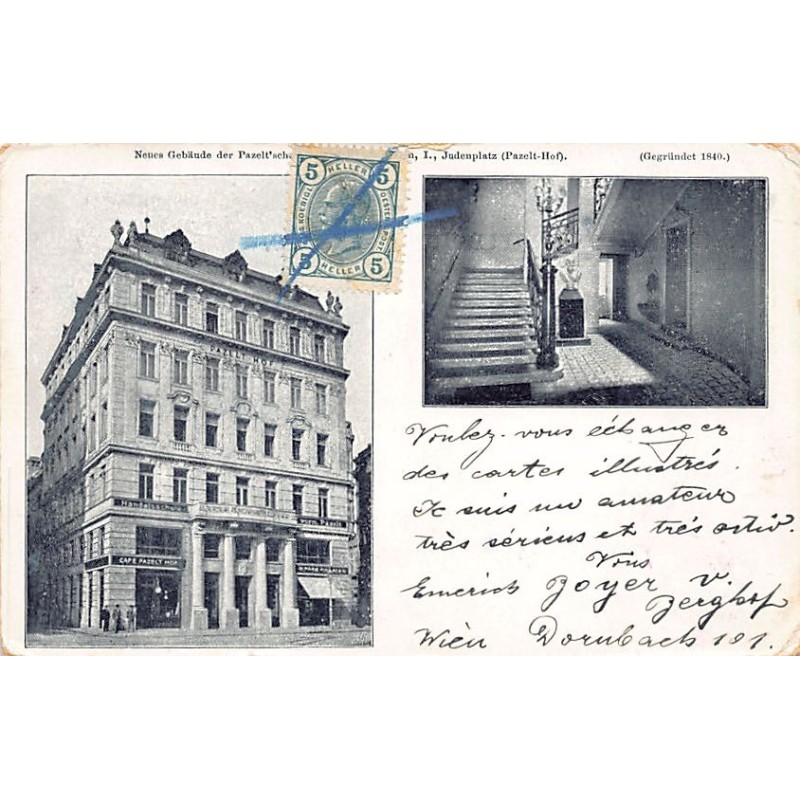 Neues Gebäude der Pazelt'sche , I., Judenplatz (Pazelt-Hof). (Gegründet 1840.)
5 HELLER 5
5 HELLER 5
PAZELT HOF
Handelsschule
CAFE PAZELT HOF
Voulez-vous échanger
des cartes illustrés.
Je suis un amateur
très sérieus et trés activ.
Vous
Emerich Joyer v.
Zerghof
Wien Dornbach 101.